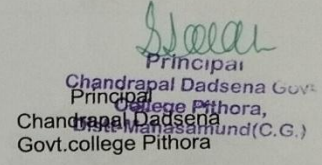 Principal
Chandrapal Dadsena Gov
College Pithora,
Distt-Mahasamund(C.G.)
Principal
Chandrapal Dadsena
Govt.college Pithora